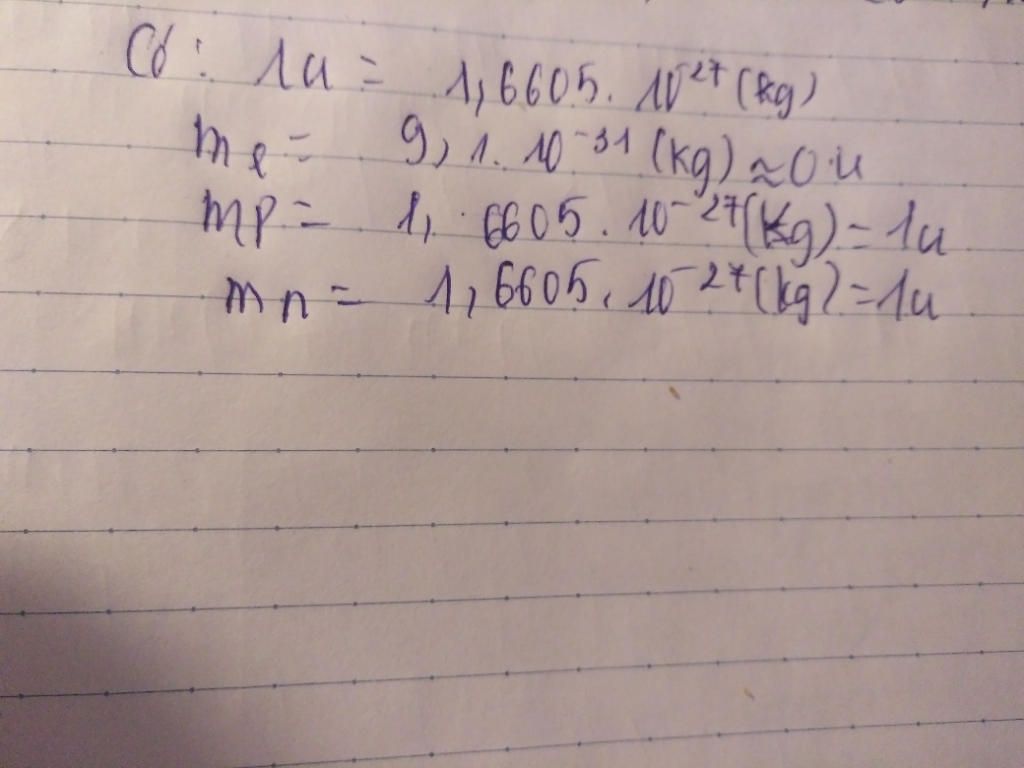 Có: 1u = 1,6605. 10^-27 (kg)
me = 9,1. 10^-31 (kg) ≈ 0.u
mp = 1, 6605. 10^-27 (kg) = 1u
mn = 1,6605. 10^-27 (kg) = 1u